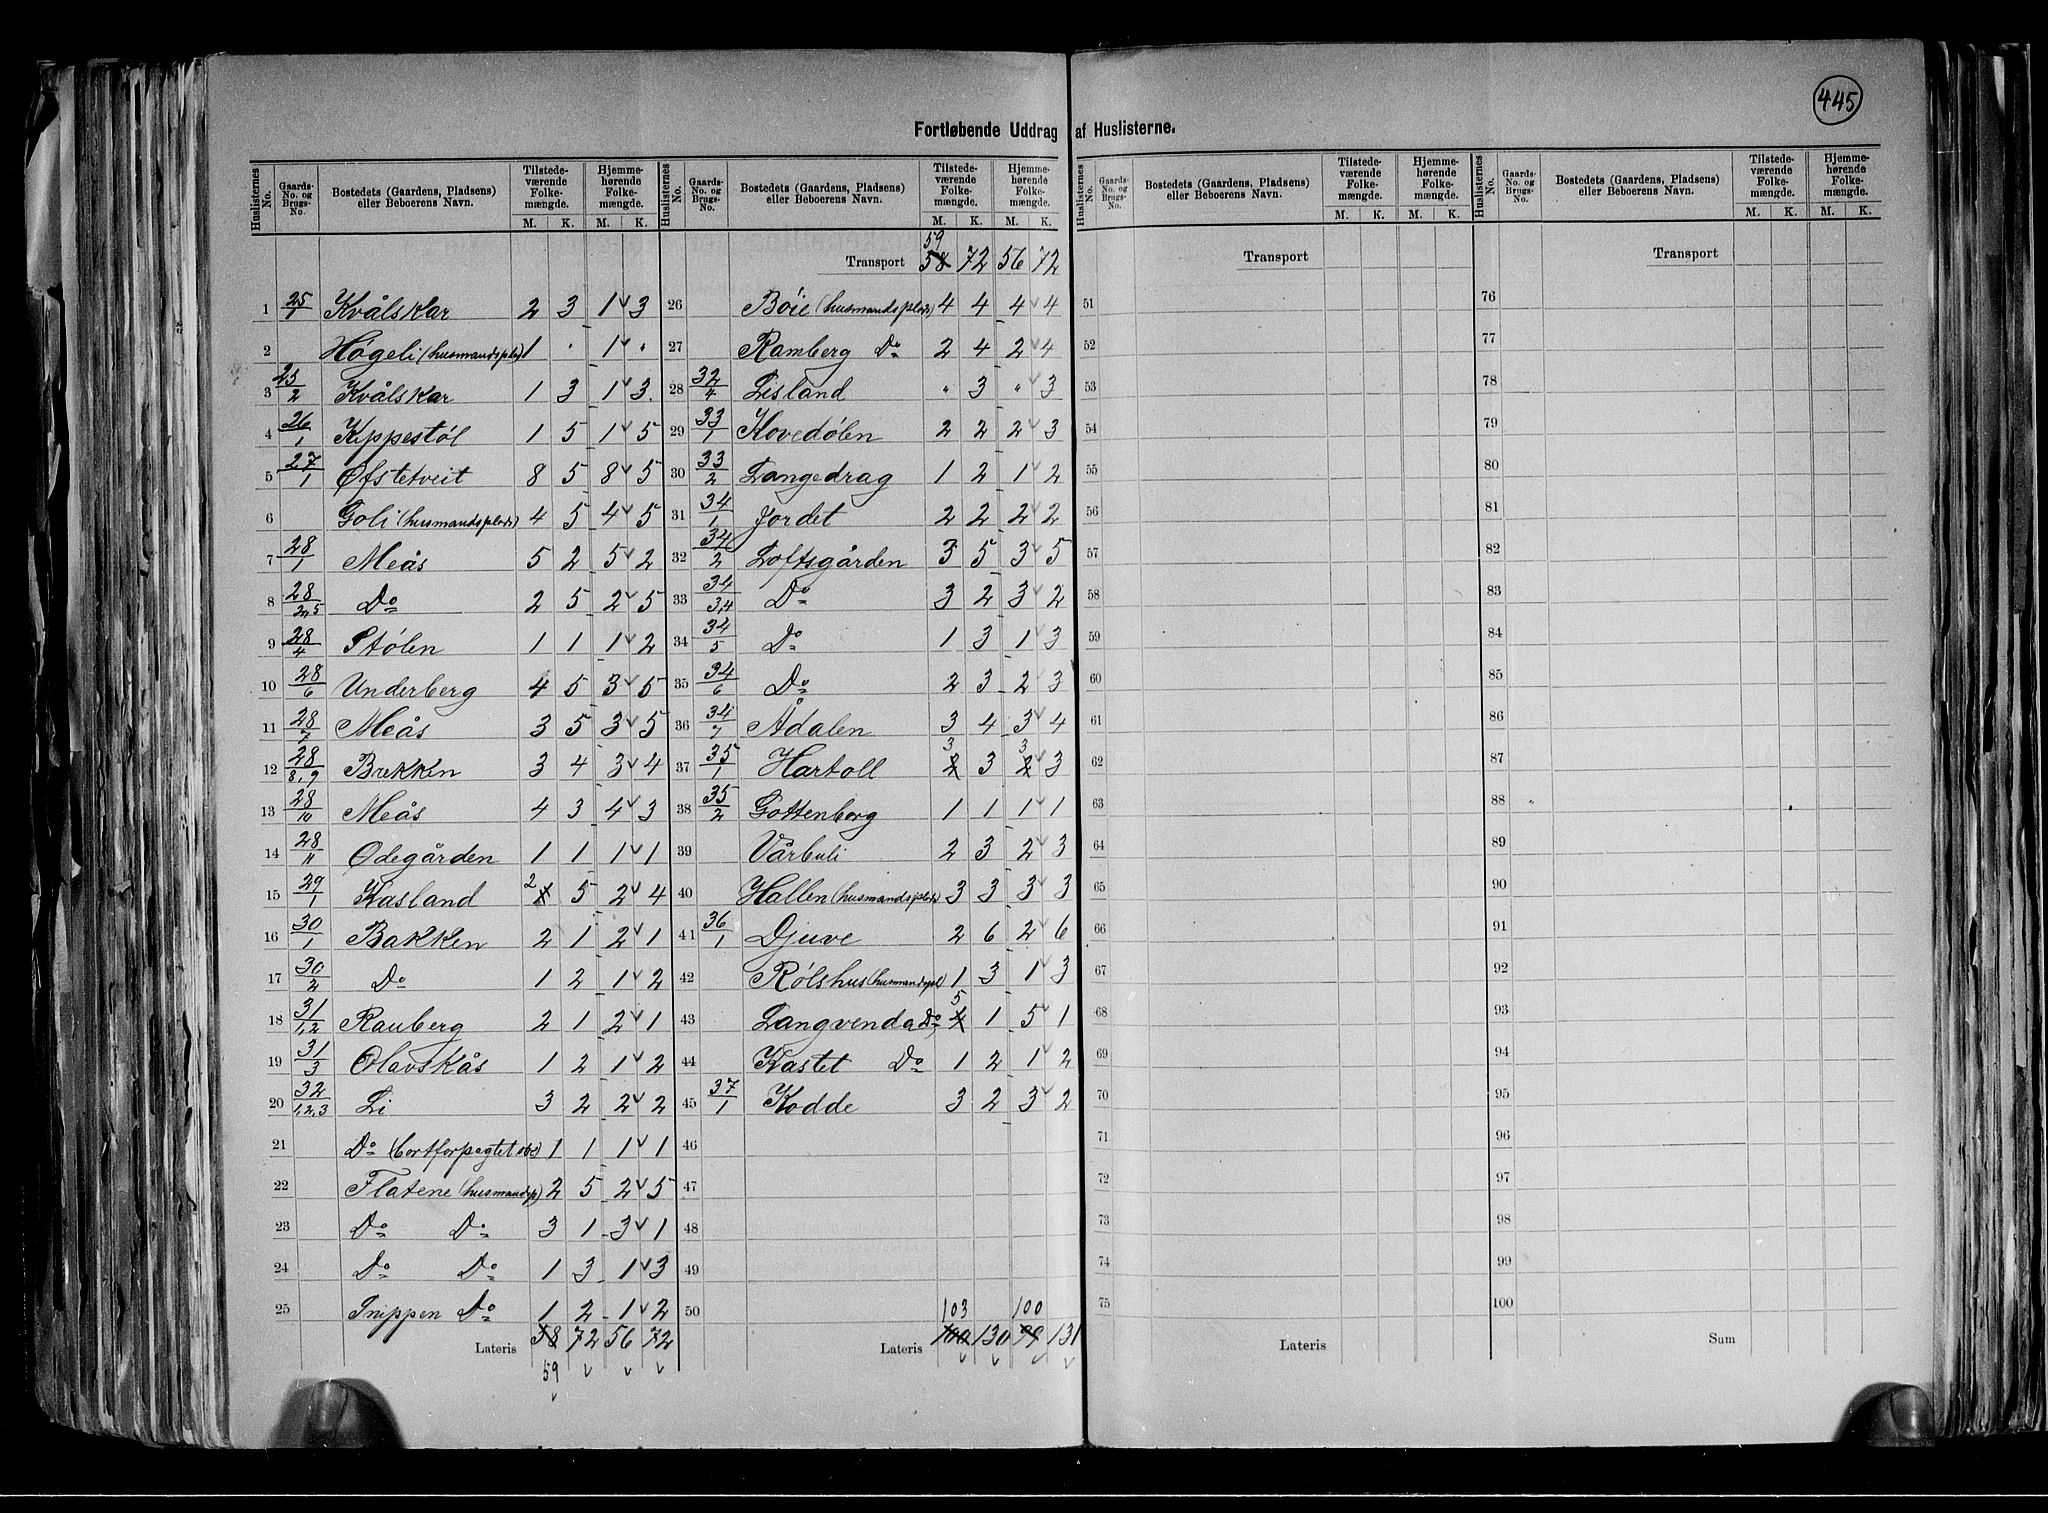 445
Fortløbende Uddrag af Huslisterne.
Huslisternes No. | Gaards-No. og Brugs-No. | Bostedets (Gaardens, Pladsens) eller Beboerens Navn. | Tilstedeværende Folkemængde. M. K. | Hjemmehørende Folkemængde. M. K.
1 25/1 Kvålskar 2 3 1 3
2 Høgeli (husmandspl) 1 " 1 "
3 25/2 Kvålskar 1 3 1 3
4 26/1 Kippestøl 1 5 1 5
5 27/1 Øfstetveit 8 5 8 5
6 Goli (husmandsplads) 4 5 4 5
7 28/1 Meås 5 2 5 2
8 28/2,5 Do 2 5 2 5
9 28/4 Stølen 1 1 1 2
10 28/6 Underberg 4 5 3 5
11 28/7 Meås 3 5 3 5
12 28/8,9 Brekken 3 4 3 4
13 28/10 Meås 4 3 4 3
14 28/11 Ødegården 1 1 1 1
15 29/1 Kasland 2 5 2 4
16 30/1 Bakken 2 1 2 1
17 30/2 Do 1 2 1 2
18 31/1,2 Rauberg 2 1 2 1
19 31/3 Olavskås 1 2 1 2
20 32/1,2,3 Li 3 2 2 2
21 Do (bortforpagtet) 1 1 1 1
22 Flatene (husmandspl) 2 5 2 5
23 Do Do 3 1 3 1
24 Do Do 1 3 1 3
25 Snippen Do 1 2 1 2
Lateris 58 72 56 72
59
Huslisternes No. | Gaards-No. og Brugs-No. | Bostedets (Gaardens, Pladsens) eller Beboerens Navn. | Tilstedeværende Folkemængde. M. K. | Hjemmehørende Folkemængde. M. K.
59
Transport 58 72 56 72
26 Bøie (husmandsplads) 4 4 4 4
27 Ramberg Do 2 4 2 4
28 32/4 Lisland " 3 " 3
29 33/1 Hovedølen 2 2 2 3
30 33/2 Langedrag 1 2 1 2
31 34/1 Jordet 2 2 2 2
32 34/2 Loftsgården 3 5 3 5
33 34/3,4 Do 3 2 3 2
34 34/5 Do 1 3 1 3
35 34/6 Do 2 3 2 3
36 34/7 Ådalen 3 4 3 4
3 3
37 35/1 Hartoll 2 3 2 3
38 35/2 Gottenborg 1 1 1 1
39 Vårbuli 2 3 2 3
40 Hallen (husmandsplads) 3 3 3 3
41 36/1 Djuve 2 6 2 6
42 Rølshus (husmandspl) 1 3 1 3
5
43 Langvenda Do 4 1 5 1
44 Kastet Do 1 2 1 2
45 37/1 Kodde 3 2 3 2
46
47
48
49
50
103 100
Lateris 100 130 99 131
Huslisternes No. | Gaards-No. og Brugs-No. | Bostedets (Gaardens, Pladsens) eller Beboerens Navn. | Tilstedeværende Folkemængde. M. K. | Hjemmehørende Folkemængde. M. K.
Transport
51
52
53
54
55
56
57
58
59
60
61
62
63
64
65
66
67
68
69
70
71
72
73
74
75
Lateris
Huslisternes No. | Gaards-No. og Brugs-No. | Bostedets (Gaardens, Pladsens) eller Beboerens Navn. | Tilstedeværende Folkemængde. M. K. | Hjemmehørende Folkemængde. M. K.
Transport
76
77
78
79
80
81
82
83
84
85
86
87
88
89
90
91
92
93
94
95
96
97
98
99
100
Sum